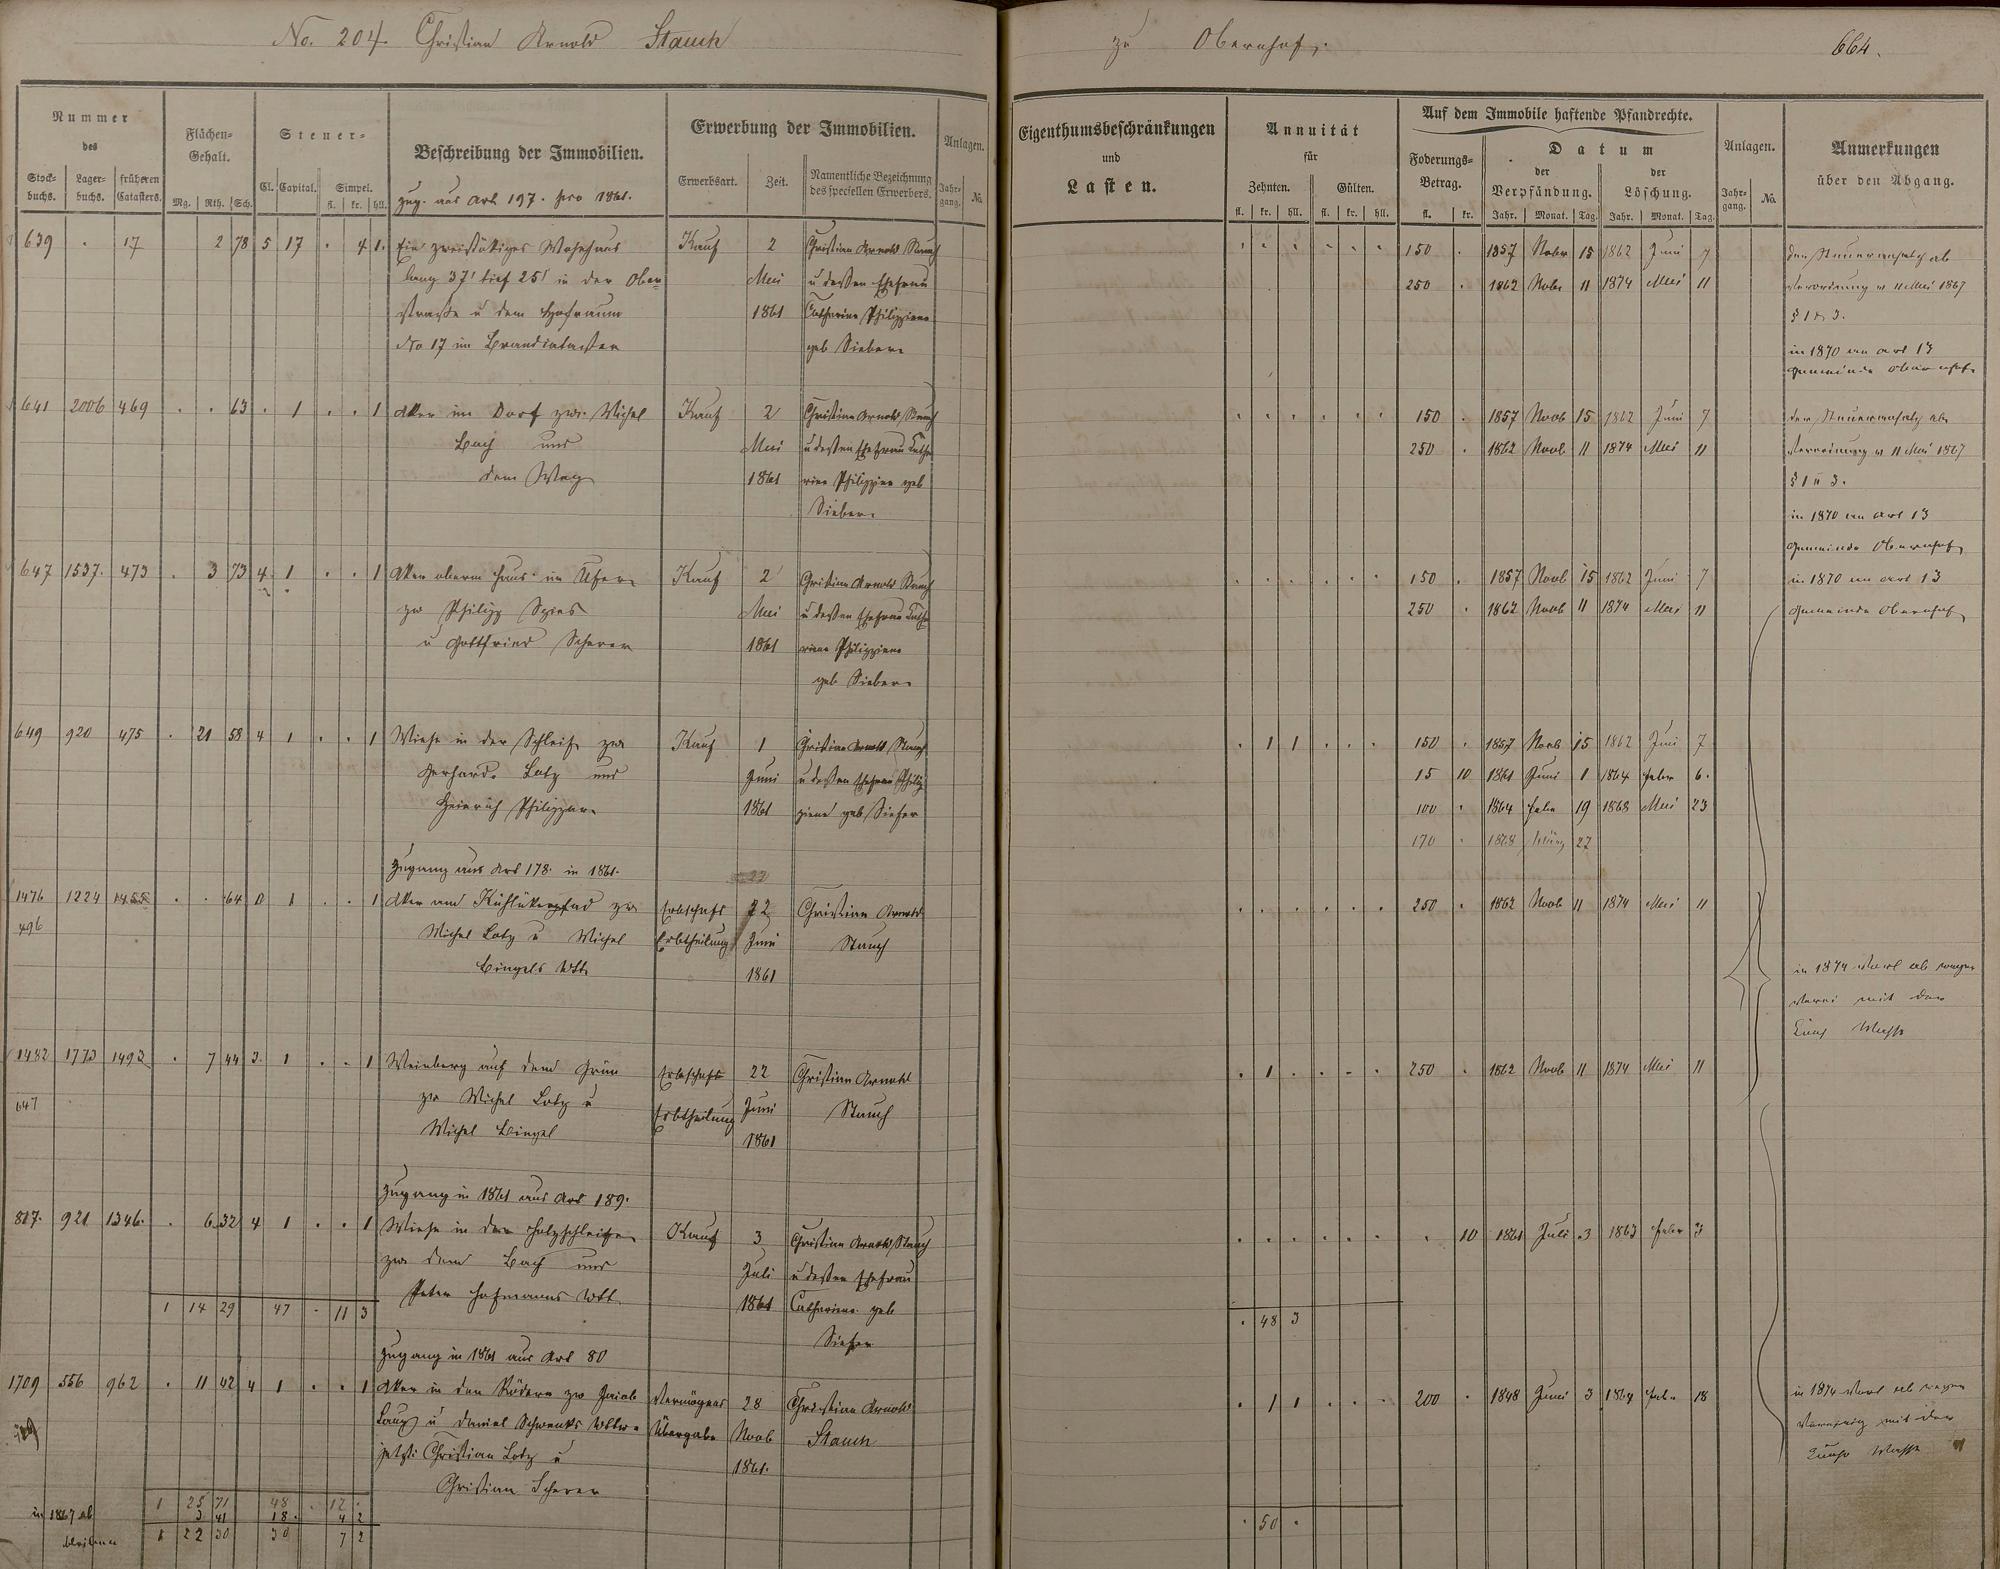 No. 204. Christian Arnold Stauch
zu Obernhof.
664.
Nummer
des
Stock-
buchs.
Lager-
buchs.
früheren
Catasters.
Flächen-
Gehalt.
Mg. Rth. Sch.
Steuer-
Cl. Capital. Simpel.
fl. kr. hll.
Beschreibung der Immobilien.
zug. aus Art 197. pro 1861.
Erwerbung der Immobilien.
Erwerbsart. Zeit.
Namentliche Bezeichnung
des speciellen Erwerbers.
Anlagen.
Jahr-
gang. No.
Eigenthumsbeschränkungen
und
Lasten.
Annuität
für
Zehnten. Gülten.
fl. kr. hll. fl. kr. hll.
Auf dem Immobile haftende Pfandrechte.
Foderungs-
Betrag.
fl. kr.
Datum
der
Verpfändung.
Jahr. Monat. Tag.
der
Löschung.
Jahr. Monat. Tag.
Anlagen.
Jahr-
gang. No.
Anmerkungen
über den Abgang.
639 . 17 2 78 5 17 . 4 1.
Ein zweistökiges Wohnhaus
lang 37' tief 25' in der Ober-
straße u dem Hofraum
No 17 im Brandcataster
Kauf
2
Mai
1861
Christian Arnold Stauch
u dessen Ehefrau
Catharina Philippine
geb Sieber
150 . 1857 Nobr 15 1862 Juni 7
250 . 1862 Nobr 11 1874 Mai 11
der Steueransatz ab
Verordnung v 11 Mai 1867
§ 1 u 3.
in 1870 an Art 13
Gemeinde Obernhof
641 2006 469 . . 63 . 1 . . 1
Aker im Dorf zw. Michel
Bach und
dem Weg
Kauf
2
Mai
1861
Christian Arnold Stauch
u dessen Ehefrau Catha
rina Philippine geb
Sieber
150 . 1857 Novb 15 1862 Juni 7
250 . 1862 Novb 11 1874 Mai 11
der Steueransatz ab
Verordnung v 11 Mai 1867
§ 1 u 3.
in 1870 an Art 13
Gemeinde Obernhof
647 1537. 473 . 3 73 4 1 . . 1
Aker oberm Haus im Ufer
zw Philipp Spies
u Gottfried Scherer
Kauf
2
Mai
1861
Christian Arnold Stauch
u dessen Ehefrau Catha
rina Philippine
geb Sieber
150 . 1857 Novb 15 1862 Juni 7
250 . 1862 Novb 11 1874 Mai 11
in 1870 an Art 13
Gemeinde Obernhof
649 920 475 . 21 58 4 1 . . 1
Wiese in der Schleif zw
Gerhard Lotz und
Heinrich Philippar
Kauf
1
Juni
1861
Christian Arnold Stauch
u dessen Ehefrau Philip
piene geb Siefer
. 1 1 . . .
150 . 1857 Novb 15 1862 Juni 7
15 10 1861 Juni 1 1864 Febr 6.
100 . 1864 Febr 19 1868 Mai 23
170 . 1868 März 27
Zugang aus Art 178. in 1861.
1476 1224 1455 . . 64 1 . . 1
496
Michel Lotz u Michel
Bingels Wtt
Erbschaft
Erbtheilung
22
Juni
1861
Christian Arnold
Stauch
250 . 1862 Novb 11 1874 Mai 11
1482 1773 1492 . 7 44 3. 1 . . 1
647
Weinberg auf dem Grün
zw Michel Lotz u
Michel Bingel
Erbschaft
Erbtheilung
22
Juni
1861
Christian Arnold
Stauch
. 1 . . . .
250 . 1862 Novb 11 1874 Mai 11
Zugang in 1861 aus Art 189.
817. 921 1346. . 6 32 4 1 . . 1
Wiese in der Holzschleifen
zw dem Bach und
Peter Hofmanns Wtt.
Kauf
3
Juli
1861
Christian Arnold Stauch
u dessen Ehefrau
Catharina geb
Siefer
. 10 1861 Juli 3 1863 Febr 3
1 14 29 47 - 11 3
. 48 3
Zugang in 1861 aus Art 80
1709 556 962 . 11 42 4 1 . . 1
Aker in den Rödern zw Jacob
u Daniel Schwenks Wttwe
jetzt Christian Lotz u
Christian Scherer
Vermögens
Übergabe
28
Novb
1861.
Christian Arnold
Stauch
. 1 1 . . .
200 . 1848 Juni 3 1864 Febr 18
1 25 71 48 . 12 .
in 1867 ab 3 41 18. 4 2
bleiben 1 22 30 30 7 2
. 50 .